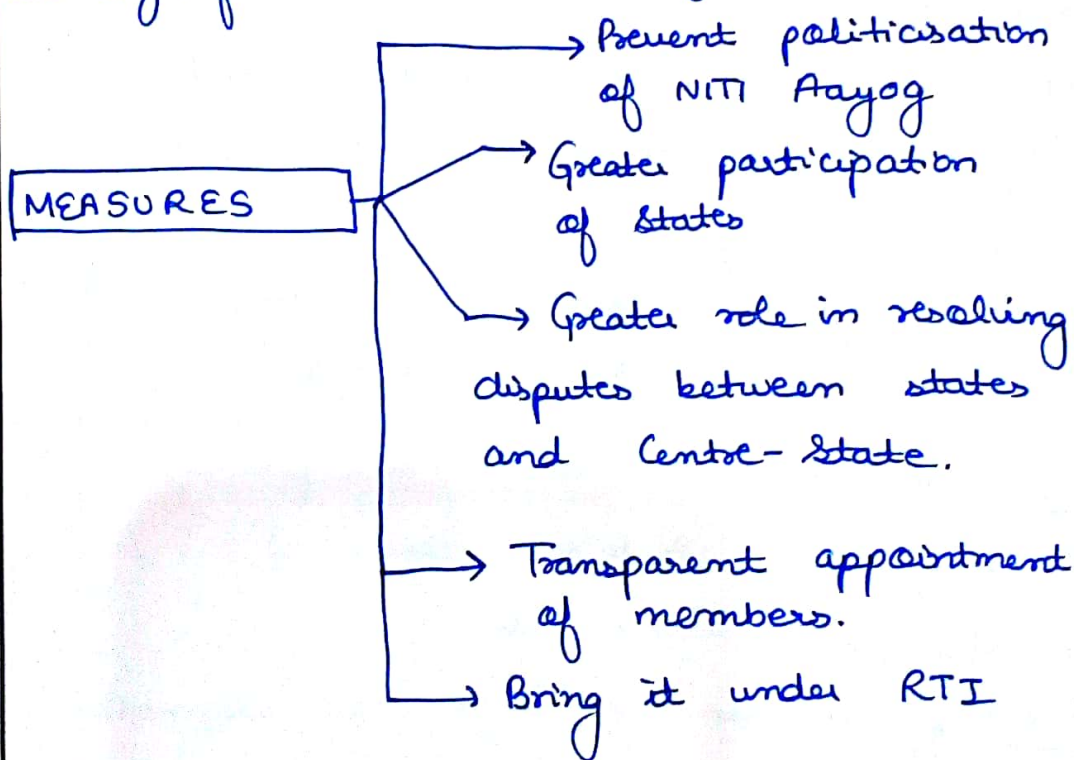 Prevent politicisation
of NITI Aayog
MEASURES
Greater participation
of States
Greater role in resolving
disputes between states
and Centre-State.
Transparent appointment
of members.
Bring it under RTI